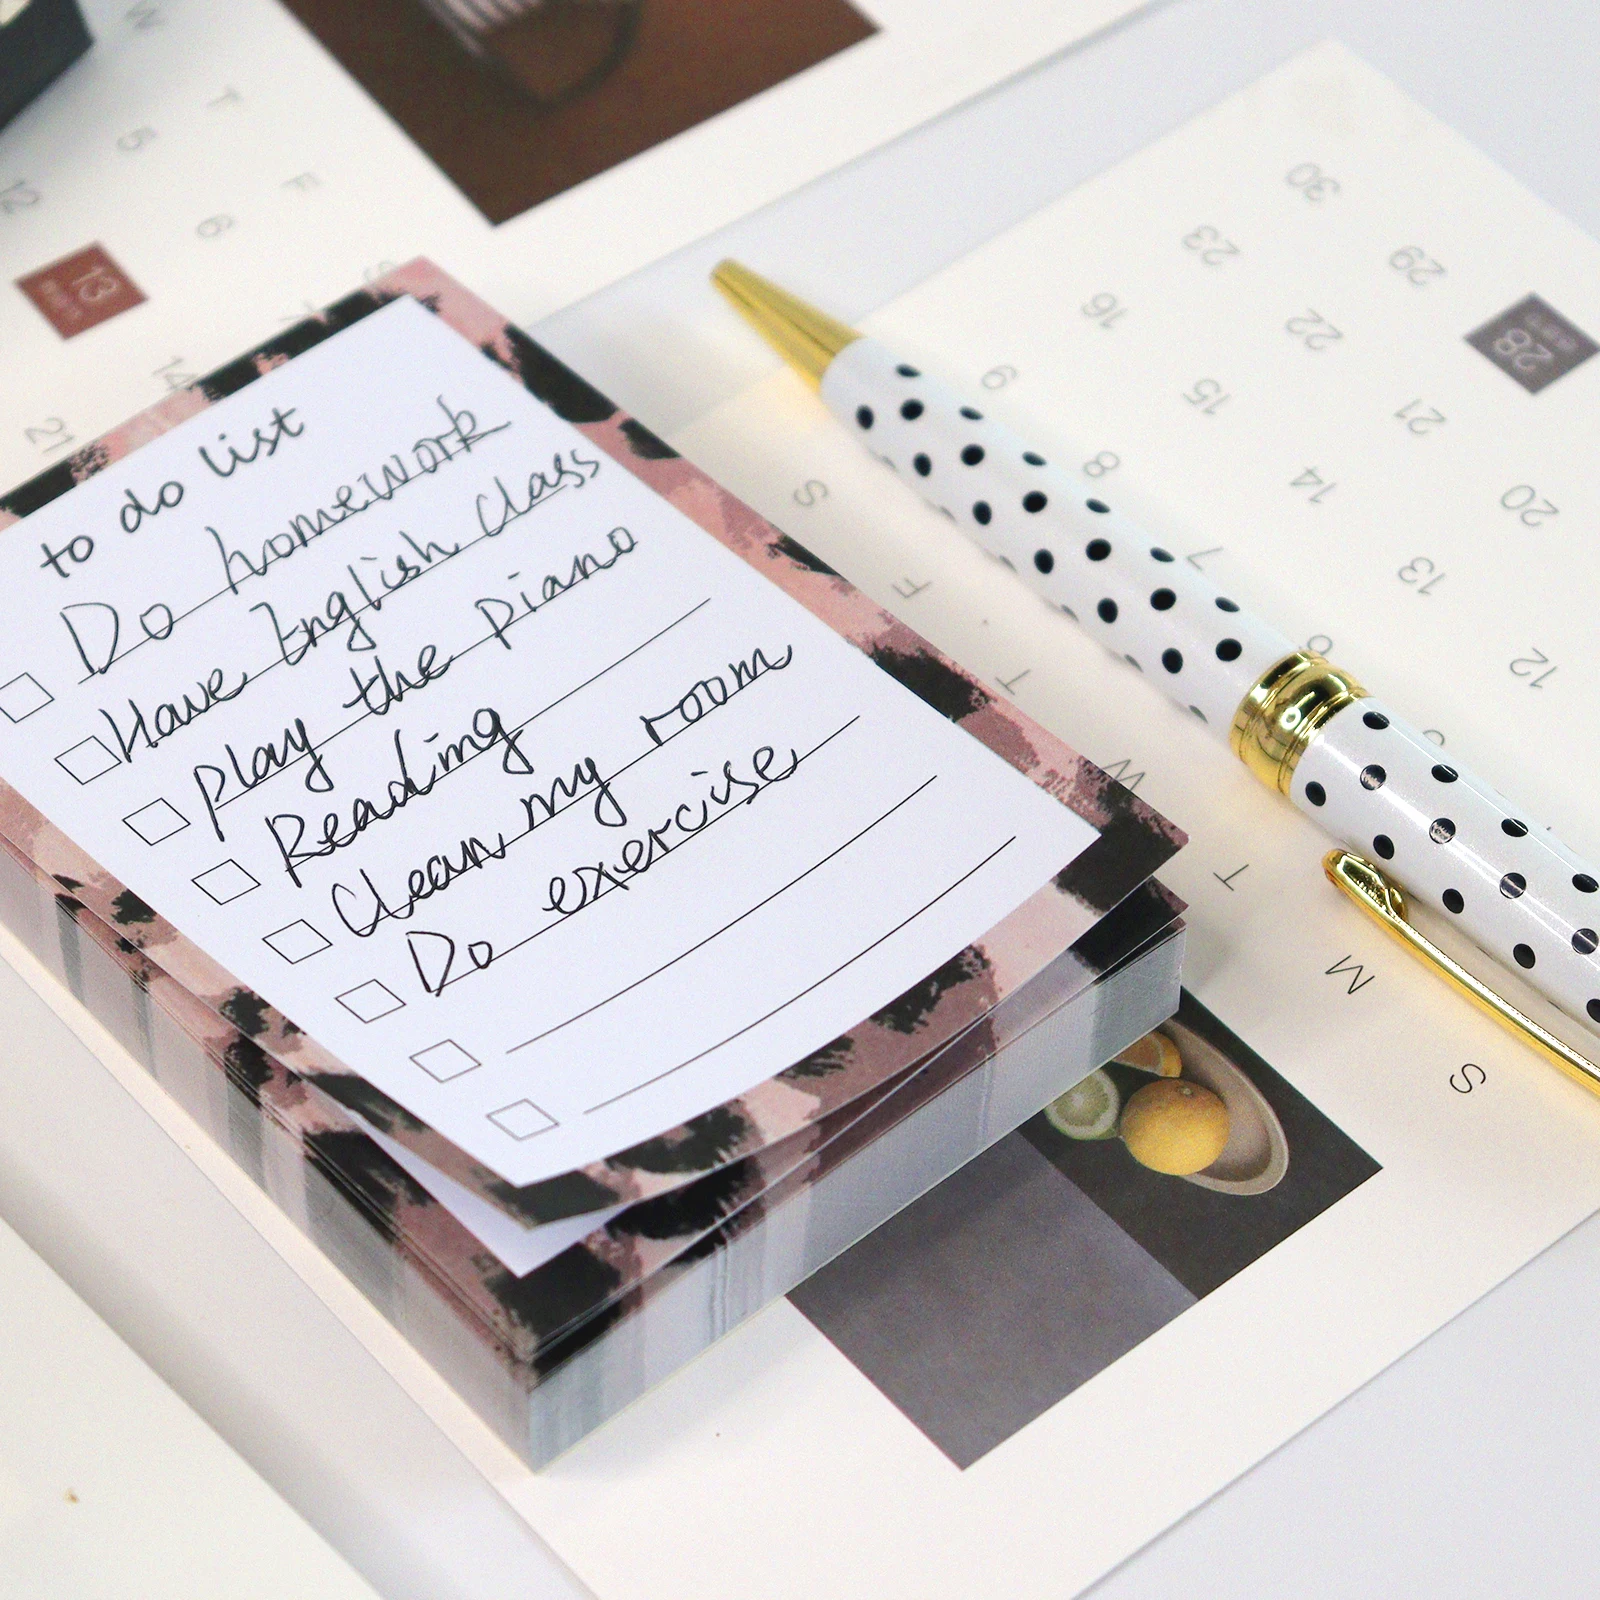 to do list
Do homework
Have English Class
play the piano
Reading
Clean my room
Do exercise
W T F
5 6
12 13 14
21
30
23 29
16 22 28
9 15 21
8 14 20
7 13
6 12
S F T W T M S